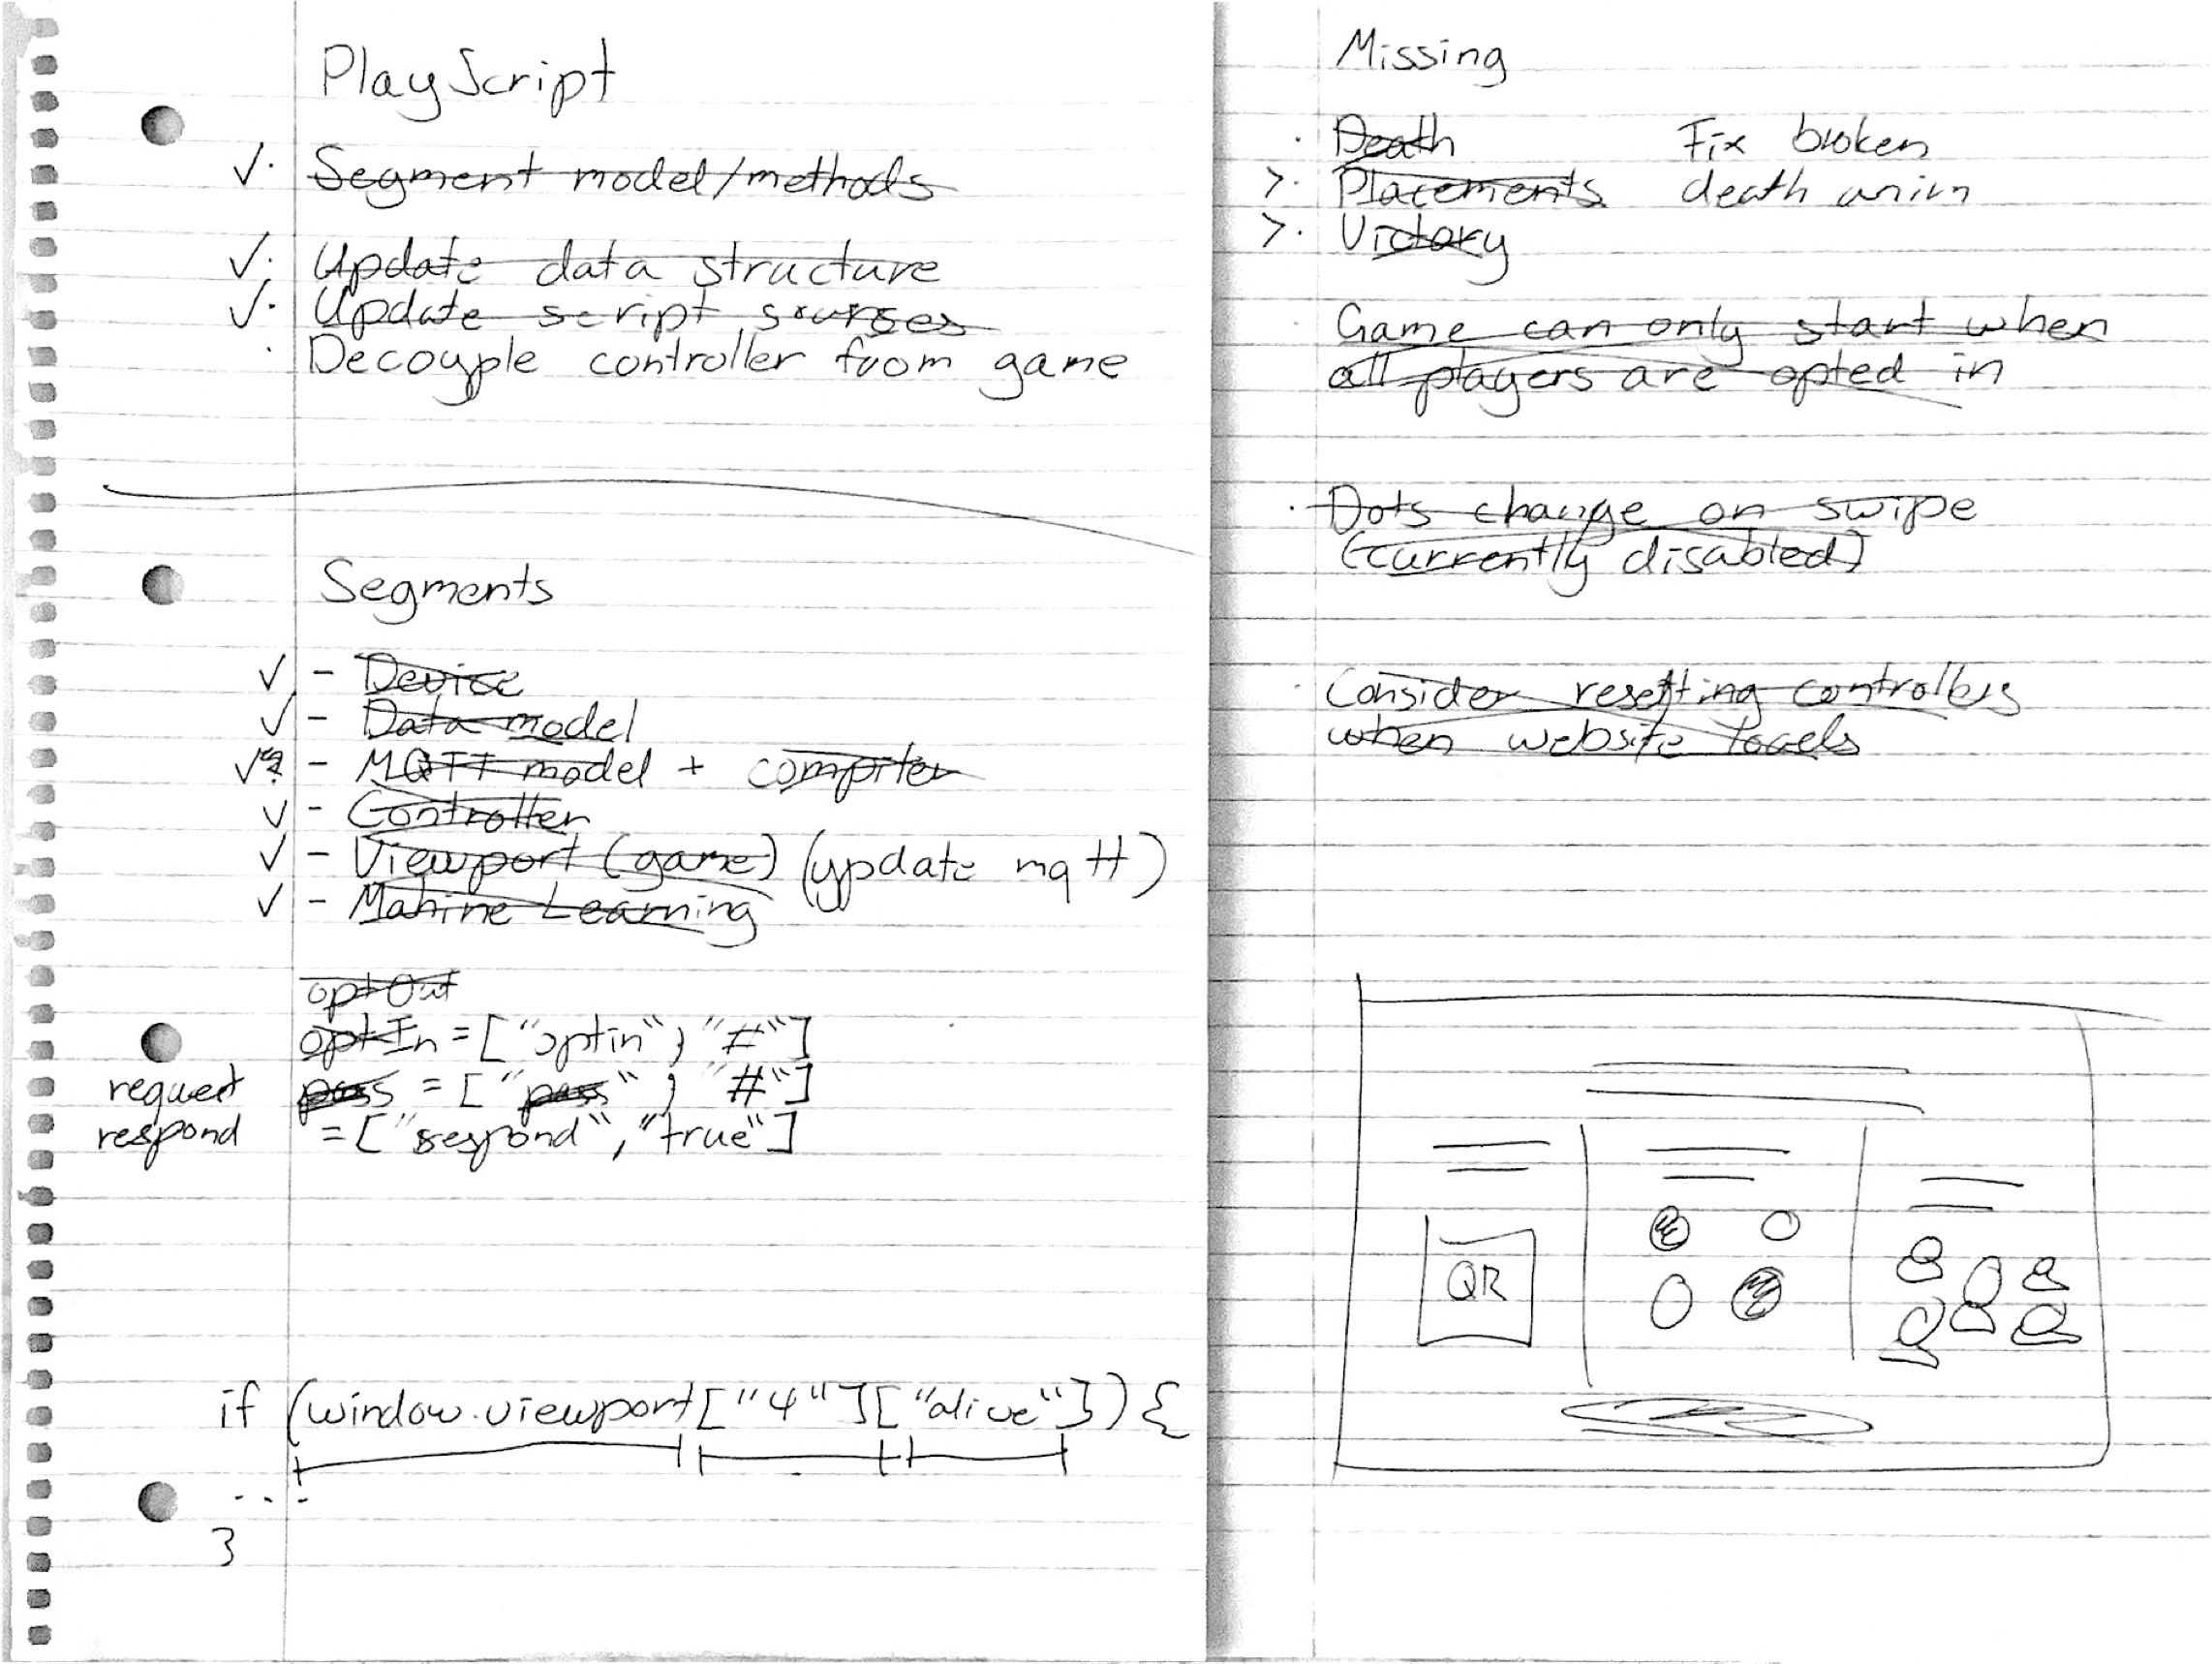 PlayScript
✓. Segment model/methods
✓. Update data structure
✓. Update script sourses
. Decouple controller from game
Segments
✓ - Device
✓ - Data model
✓? - MQTT model + compiler
✓ - Controller
✓ - Viewport (game) (update mqtt)
✓ - Mahine Learning
optOut
optIn = ["optin", "#"]
request pass = ["pass", "#"]
respond = ["respond", "true"]
if (window.viewport["4"]["alive"]) {
...
}
Missing
. Death Fix broken
>. Placements death anim
>. Victory
. Game can only start when
all players are opted in
. Dots change on swipe
(currently disabled)
. Consider resetting controllers
when website loads
QR